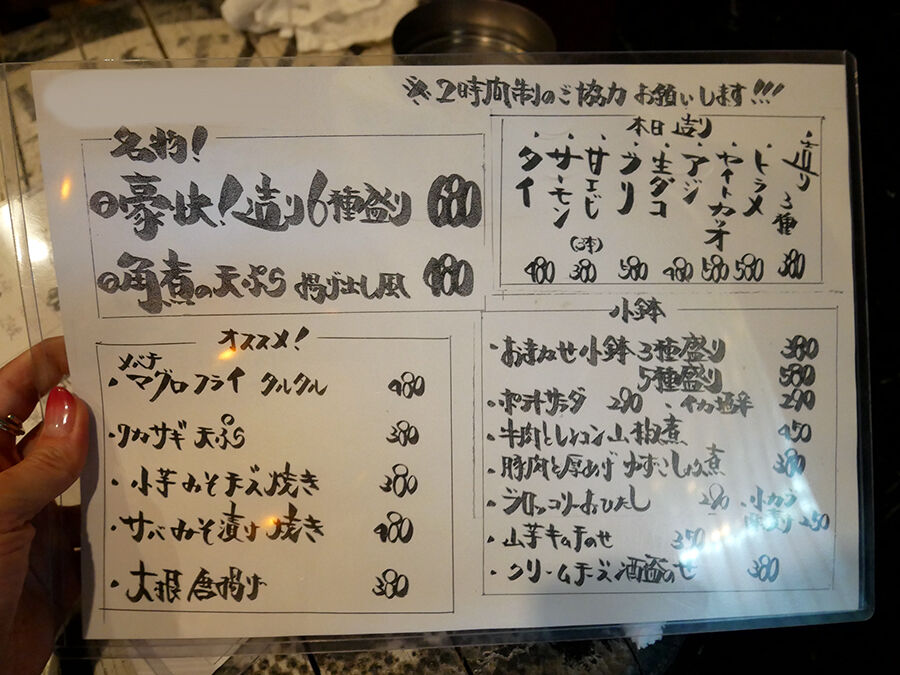 ※2時間制のご協力 お願いします!!!
名物!
豪快!造り6種盛り 680
角煮の天ぷら 揚げ出し風 480
本日 造り
造り3種 380
ヒラメ 580
ヤイトカツオ 580
アジ 480
生ダコ
ブリ 580
甘エビ (3本) 380
サーモン
タイ 480
オススメ!
・マグロフライ タルタル 480
・ワカサギ 天ぷら 380
・小芋みそチーズ焼き 380
・サバみそ漬け焼き 480
・大根 唐揚げ 380
小鉢
・おまかせ小鉢 3種盛り 380
5種盛り 580
・ポテトサラダ 290 ・イカ塩辛 290
・牛肉とレンコン山椒煮 450
・豚肉と厚あげ ゆずこしょう煮 380
・ブロッコリーおひたし 290 ・小カブ
250
・山芋キムチのせ 350
・クリームチーズ酒盗のせ 380